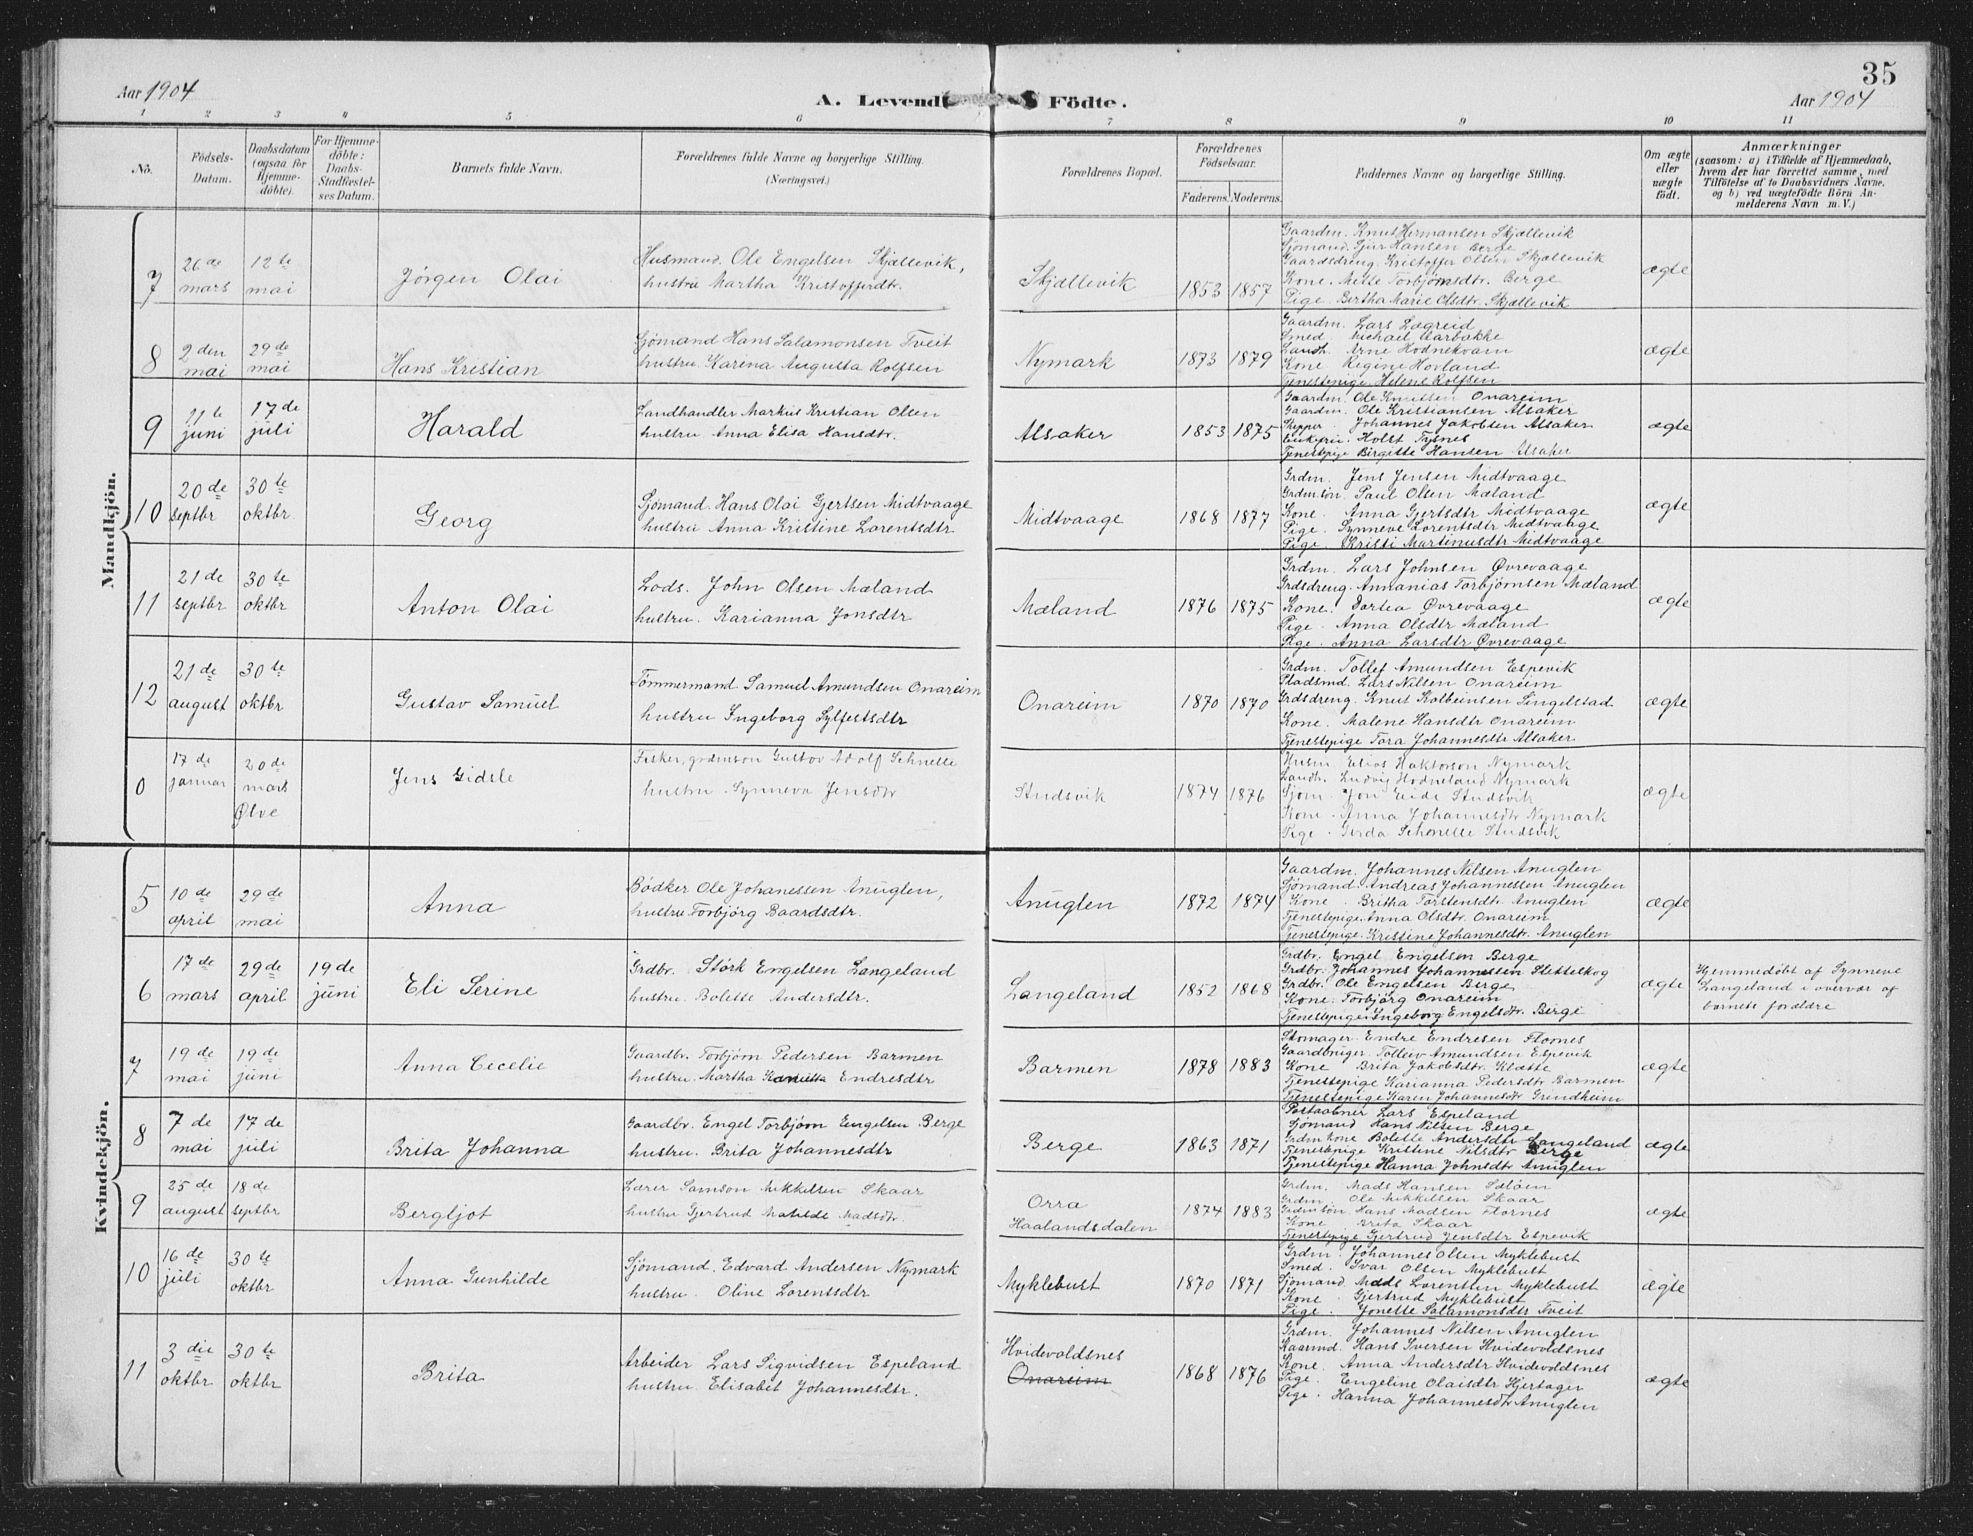 35
Aar 1904
A. Levende Födte.
Aar 1904
1 2 3 4 5 6 7 8 9 10 11
No.
Födsels-
Datum.
Daabsdatum
(ogsaa for
Hjemme-
döbte).
For Hjemme-
döbte:
Daabs-
Stadfæstel-
ses Datum.
Barnets fulde Navn.
Forældrenes fulde Navne og borgerlige Stilling.
(Næringsvei.)
Forældrenes Bopæl.
Forældrenes
Födselsaar.
Faderens. Moderens.
Faddernes Navne og borgerlige Stilling.
Om ægte
eller
uægte
födt.
Anmærkninger
(saasom: a) i Tilfælde af Hjemmedaab,
hvem der har forrettet samme, med
Tilföielse af to Daabsvidners Navne,
og b) ved uægtefödte Börn An-
melderens Navn m. V.)
Mandkjön.
7
26 de
mars
12 te
mai
Jørgen Olai
Husmand. Ole Engelsen Skjællevik,
hustru Martha Kristoffersdtr.
Skjællevik
1853 1857
Gaardm. Knut Hermansen Skjællevik
Sjömand. Sjur Hansen Berge
Gaardsdreng. Kristoffer Olsen Skjællevik
Kone. Mette Torbjörnsdtr. Berge
Pige. Bertha Marie Olsdtr. Skjællevik
ægte
8
2 den
mai
29 de
mai
Hans Kristian
Sjömand Hans Salamonsen Tveit
hustru Karina Augusta Rolfsen
Nymark
1873 1879
Gaardm. Lars Lægreid
Smed. Michael Aarbakke
Landh. Arne Hodnekvam
Kone Regine Hovland
Tjenestepige. Helene Rolfsen
ægte
9
11 te
juni
17 de
juli
Harald
Landhandler Markus Kristian Olsen
hustru Anna Elisa Hansdtr.
Alsaker
1853 1875
Gaardm. Ole Knutsen Onareim
Gaardm. Ole Kristiansen Alsaker
Skipper. Johannes Jakobsen Alsaker
Holst Tysnes
Tjenestepige Birgitte Hansen Alsaker
ægte
10
20 de
septbr
30 te
oktbr
Georg
Sjömand. Hans Olai Gjertsen Midtvaage
hustru Anna Kristine Lorentsdtr
Midtvaage
1868 1877
Grdm. Jens Jensen Midtvaage
Grdmsön. Paul Olsen Mæland
Kone. Anna Gjertsdtr Midtvaage
Pige. Synneve Lorentsdtr Midtvaage
Pige. Kristi Martinusdtr Midtvaage
ægte
11
21 de
septbr
30 te
oktbr
Anton Olai
Lods. John Olsen Mæland
hustru. Karianna Jonsdtr
Mæland
1876 1875
Grdm. Lars Johnsen Øvrevaage
Grdsdreng. Annanias Torbjörnsen Mæland
Kone. Dortea Øvrevaage
Pige. Anna Olsdtr Mæland
Pige. Anna Larsdtr Øvrevaage
ægte
12
21 de
august
30 te
oktbr
Gustav Samuel
Tömmermand Samuel Amundsen Onareim
hustru Ingeborg Sylfestsdtr
Onareim
1870 1870
Grdm. Tollef Amundsen Espevik
Pladsmd. Lars Nilsen Onareim
Grdsdreng. Knut Kolbeinsen Singelstad
Kone. Malene Hansdtr Onareim
Tjenestepige Tora Johannesdtr Alsaker
ægte
0
17 de
januar
20 de
mars
Ølve
Jens Gidsle
Fisker, grdmsön Gustav Adolf Schnelle
hustru. Synneva Jensdtr
Studsvik
1874 1876
Husm Elias Haktorson Nymark
Landh. Ludvig Hodneland Nymark
Sjöm. Jon Eide Studsvik
Kone. Anna Johannesdtr Nymark
Pige. Gerda Schnelle Studsvik
ægte
Kvindekjön.
5
10 de
april
29 de
mai
Anna
Bödker Ole Johanessen Anuglen,
hustru Torbjörg Baardsdtr.
Anuglen
1872 1874
Gaardm. Johannes Nilsen Anuglen
Sjömand. Andreas Johannessen Anuglen
Kone. Britha Torstensdtr. Anuglen
Tjenestepige. Anna Olsdtr. Onareim
Tjenestepige. Kristine Johannesdtr. Anuglen
ægte
6
17 de
mars
29 de
april
19 de
juni
Eli Serine
Grdbr. Störk Engelsen Langeland
hustru. Bolette Andersdtr.
Langeland
1852 1868
Grdbr. Engel Engelsen Berge
Grdbr. Johannes Johannessen Slettelkog
Grdbr. Ole Engelsen Berge
Kone. Torbjörg Onareim
Tjenestepige. Ingeborg Engelsdtr. Berge
ægte
Hjemmedöbt af Synneve
Langeland i overvær af
barnets forældre
7
19 de
mai
19 de
juni
Anna Cecelie
Gaardbr. Torbjörn Pedersen Barmen
hustru. Martha Endresdtr
Barmen
1878 1883
Skomager. Endre Endresen Flornes
Gaardbruger. Tolleiv Amundsen Espevik
Kone Brita Jakobsdtr. Klætte
Tjenestepige Karianna Pedersdtr Barmen
Tjenestepige Karen Johannesdtr Grindheim
ægte
8
7 de
mai
17 de
juli
Brita Johanna
Gaardbr. Engel Torbjörn Engelsen Berge
hustru. Brita Johannesdtr
Berge
1863 1871
Postaabner Lars Espeland
Sjömand Hans Nilsen Berge
Grdm kone Bolette Andersdtr Langeland
Tjenestepige Kristine Nilsdtr Berge
Tjenestepige Hanna Johnsdtr Anuglen
ægte
9
25 de
august
18 de
septbr
Bergljot
Lærer Samson Mikkelsen Skaar
hustru Gjertrud Matilde Madsdtr.
Orra
Haalandsdalen
1874 1883
Grdm. Mads Hansen Sælöen
Grdm. Ole Mikkelsen Skaar
Grdmsön Hans Madsen Flornes
Kone Brita Skaar
Tjenestepige Gjertrud Jensdtr Espevik
ægte
10
16 de
juli
30 te
oktbr
Anna Gunhilde
Sjömand. Edvard Andersen Nymark
hustru. Oline Lorentsdtr
Myklebust
1870 1871
Grdm. Johannes Olsen Myklebust
Smed. Ivar Olsen Myklebust
Sjömand Mads Lorentsen Myklebust
Kone Gjertrud Myklebust
Pige. Jonette Salamonsdtr Tveit
ægte
11
3 die
oktbr
30 te
oktbr
Brita
Arbeider Lars Sigvidsen Espeland
hustru. Elisabet Johannesdtr.
Hvidevoldsnes
Onareim
1868 1876
Grdm. Johannes Nilsen Anuglen
Husmd. Hans Iversen Hvidevoldsnes
Kone. Anna Andersdtr Hvidevoldsnes
Pige. Engeline Olaisdtr Hjertager
Pige. Hanna Johannesdtr Anuglen
ægte